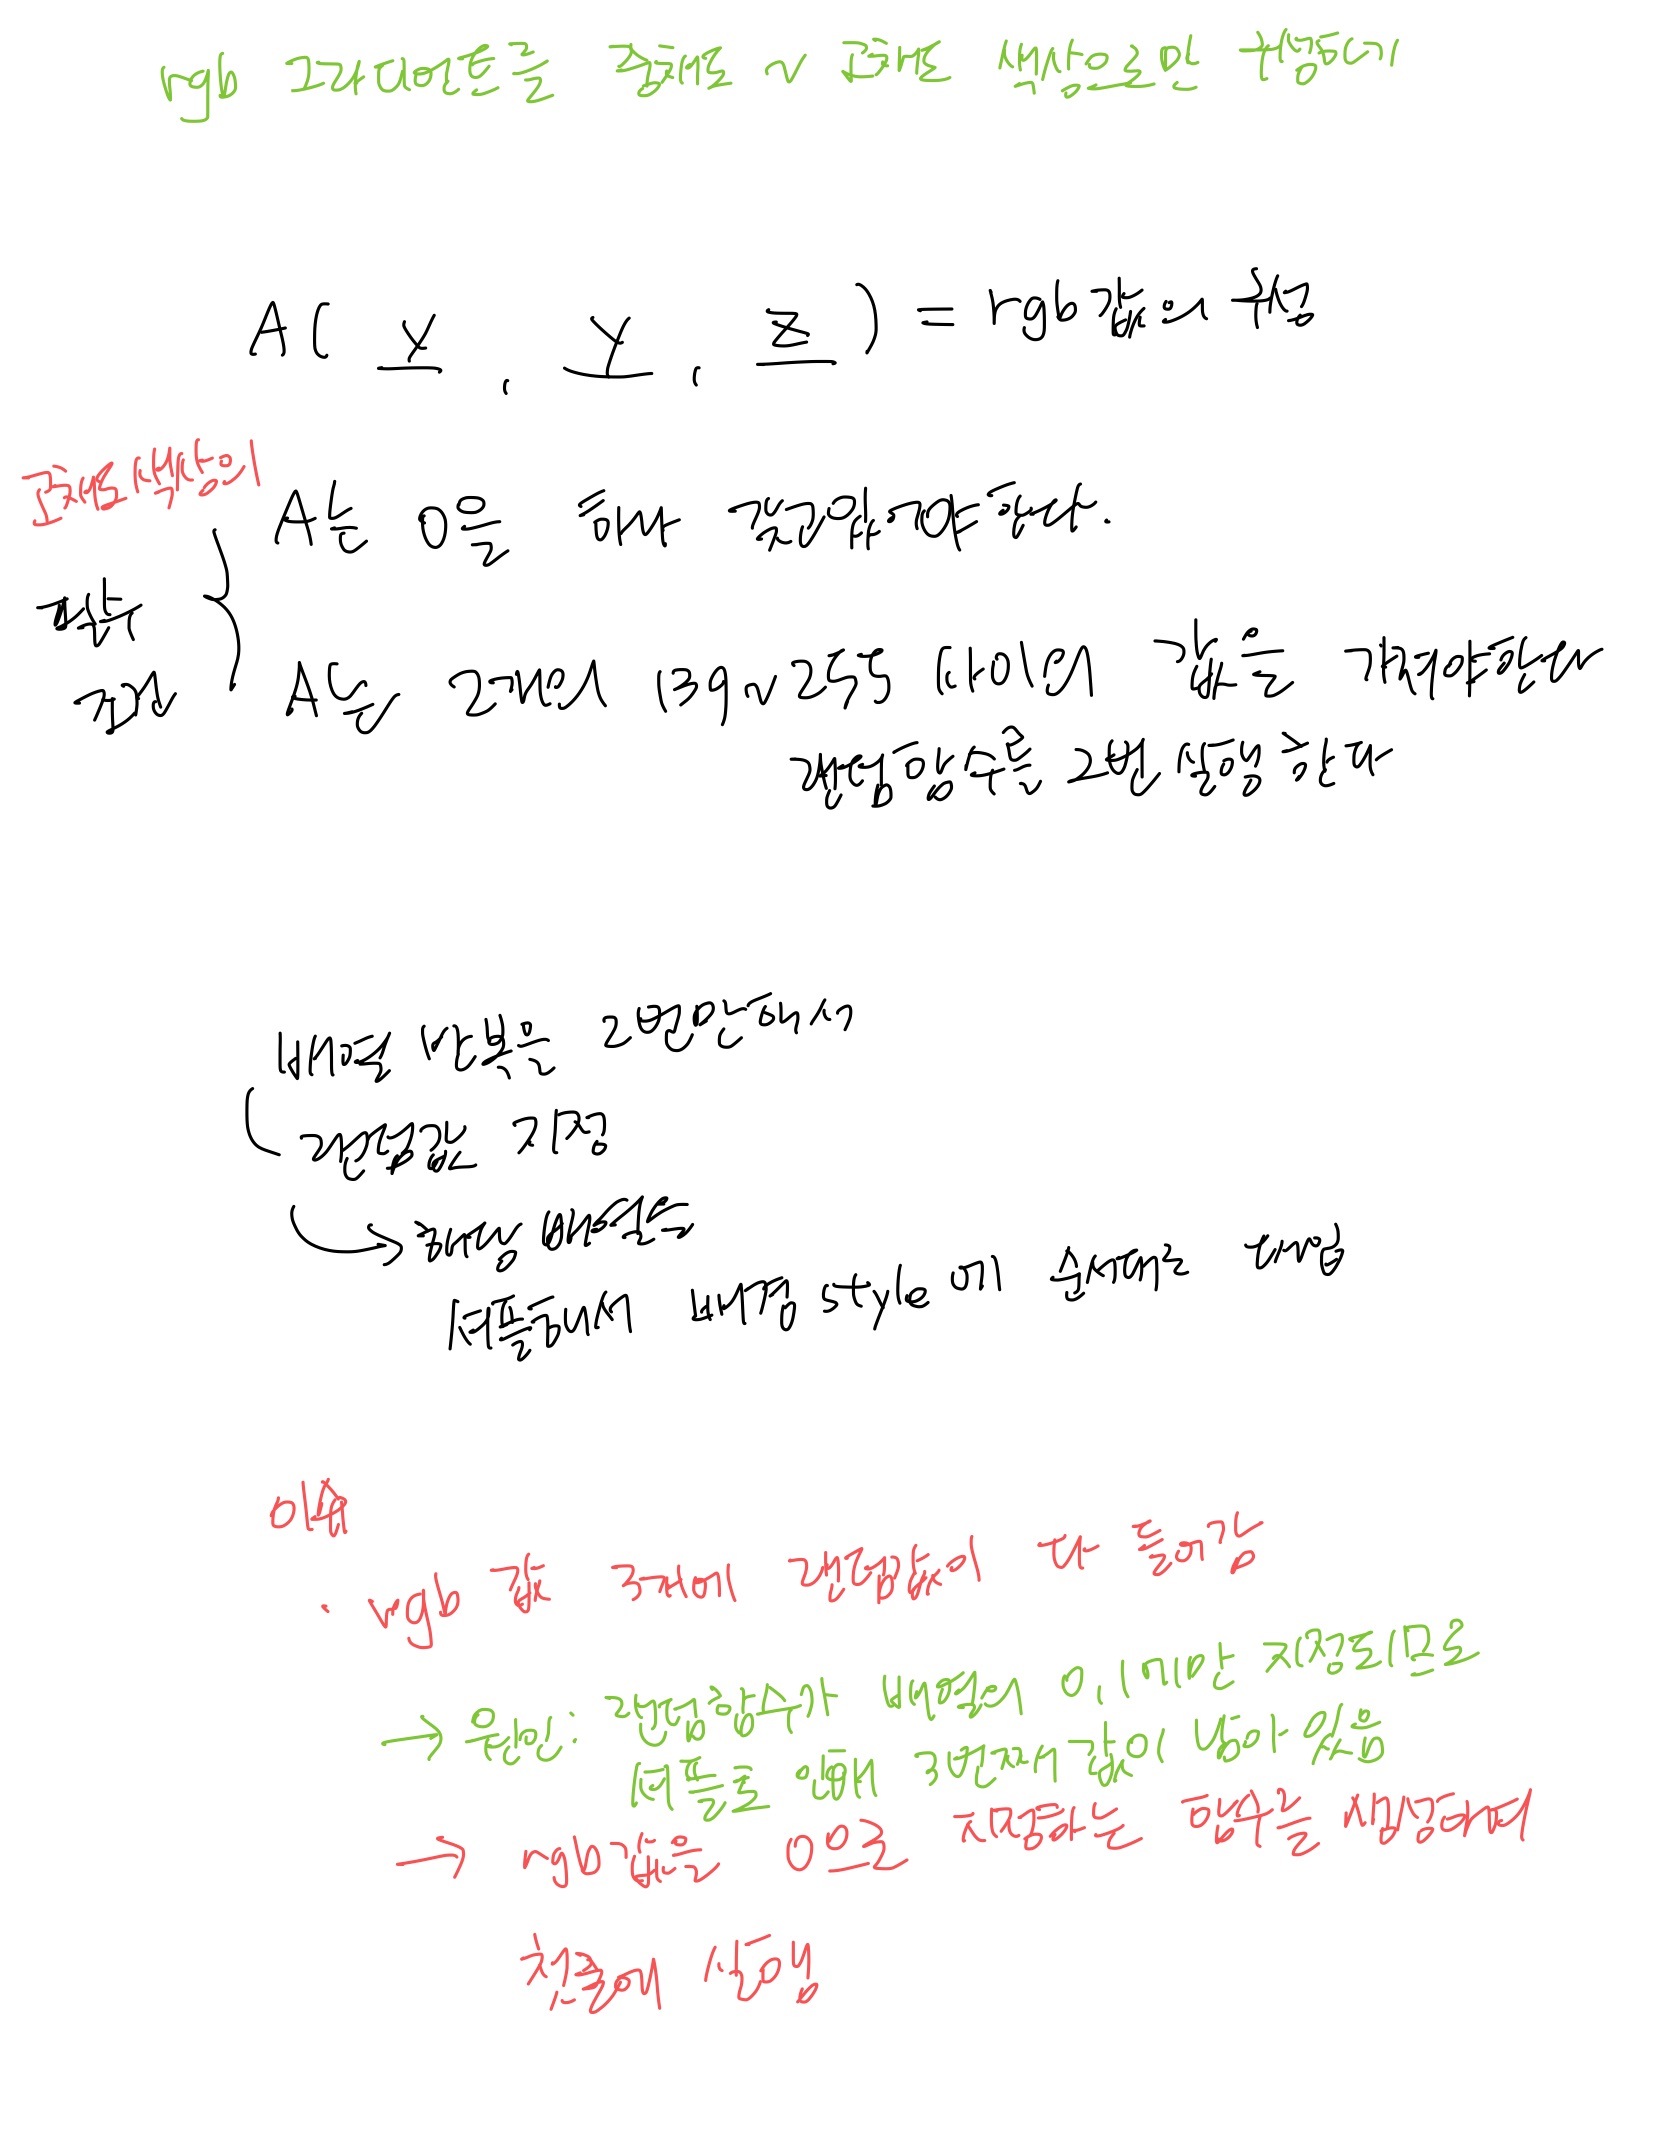 rgb 그라디언트를 중채도 ~ 고채도 색상으로만 구성하기
A( x , y , z ) = rgb 값의 구성
고채도 색상의
필수
조건
A는 0을 하나 갖고있어야 한다.
A는 2개의 139~255 사이의 값을 가져야한다
랜덤함수를 2번 실행한다
배열 반복은 2번만해서
랜덤값 지정
→ 해당 배열을
셔플해서 배경 style에 순서대로 대입
이슈
· rgb 값 3개에 랜덤값이 다 들어감
→ 원인: 랜덤함수가 배열의 0,1에만 지정되므로
셔플로 인해 3번째 값이 남아있음
→ rgb값을 0으로 지정하는 함수를 생성하여
첫줄에 실행